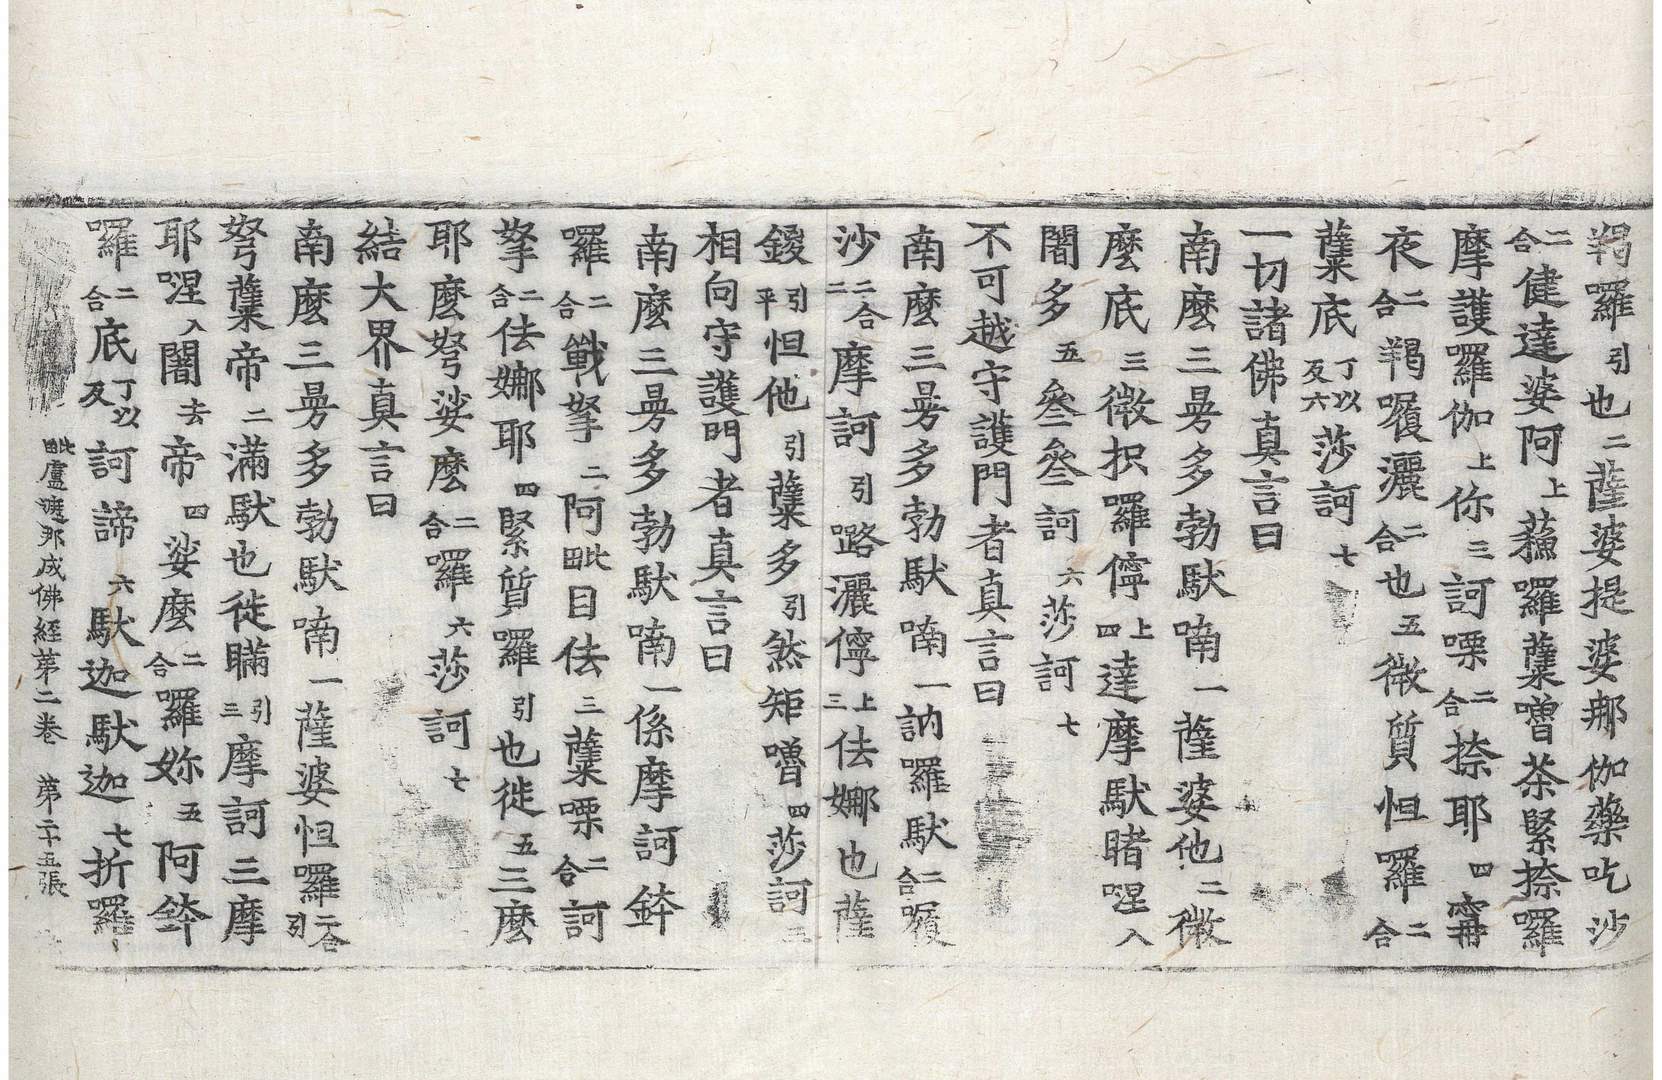 羯囉引也二薩婆提婆那伽藥吃沙
二合健達婆阿上蘓囉蘖嚕茶緊捺囉
摩護囉伽上你三訶㗚二合捺耶四寧
夜二合羯囑灑二合也五微質怛囉二合
蘖底丁以反六莎訶七
一切諸佛真言曰
南麼三曼多勃馱喃一薩婆他二微
麼底三微枳囉儜上四達摩馱睹涅入
闇多五叄叄訶六莎訶七
不可越守護門者真言曰
南麼三曼多勃馱喃一訥囉馱二合囑
沙二合二摩訶引路灑儜上三佉娜也薩
鍐引平怛他引蘖多引然矩嚕四莎訶
相向守護門者真言曰
南麼三曼多勃馱喃一係摩訶鉢
囉二合戰拏二阿毗目佉三蘖㗚二合訶
拏二合佉娜耶四緊質囉引也徙五三麼
耶麼弩娑麼二合囉六莎訶七
結大界真言曰
南麼三曼多勃馱喃一薩婆怛囉二合引
弩蘖帝二滿馱也徙瞞引三摩訶三摩
耶涅入闇去帝四娑麼二合囉妳五阿鉢
囉二合底丁以反訶諦六馱迦馱迦七折囉
毗盧遮那成佛經第二卷 第二十五張